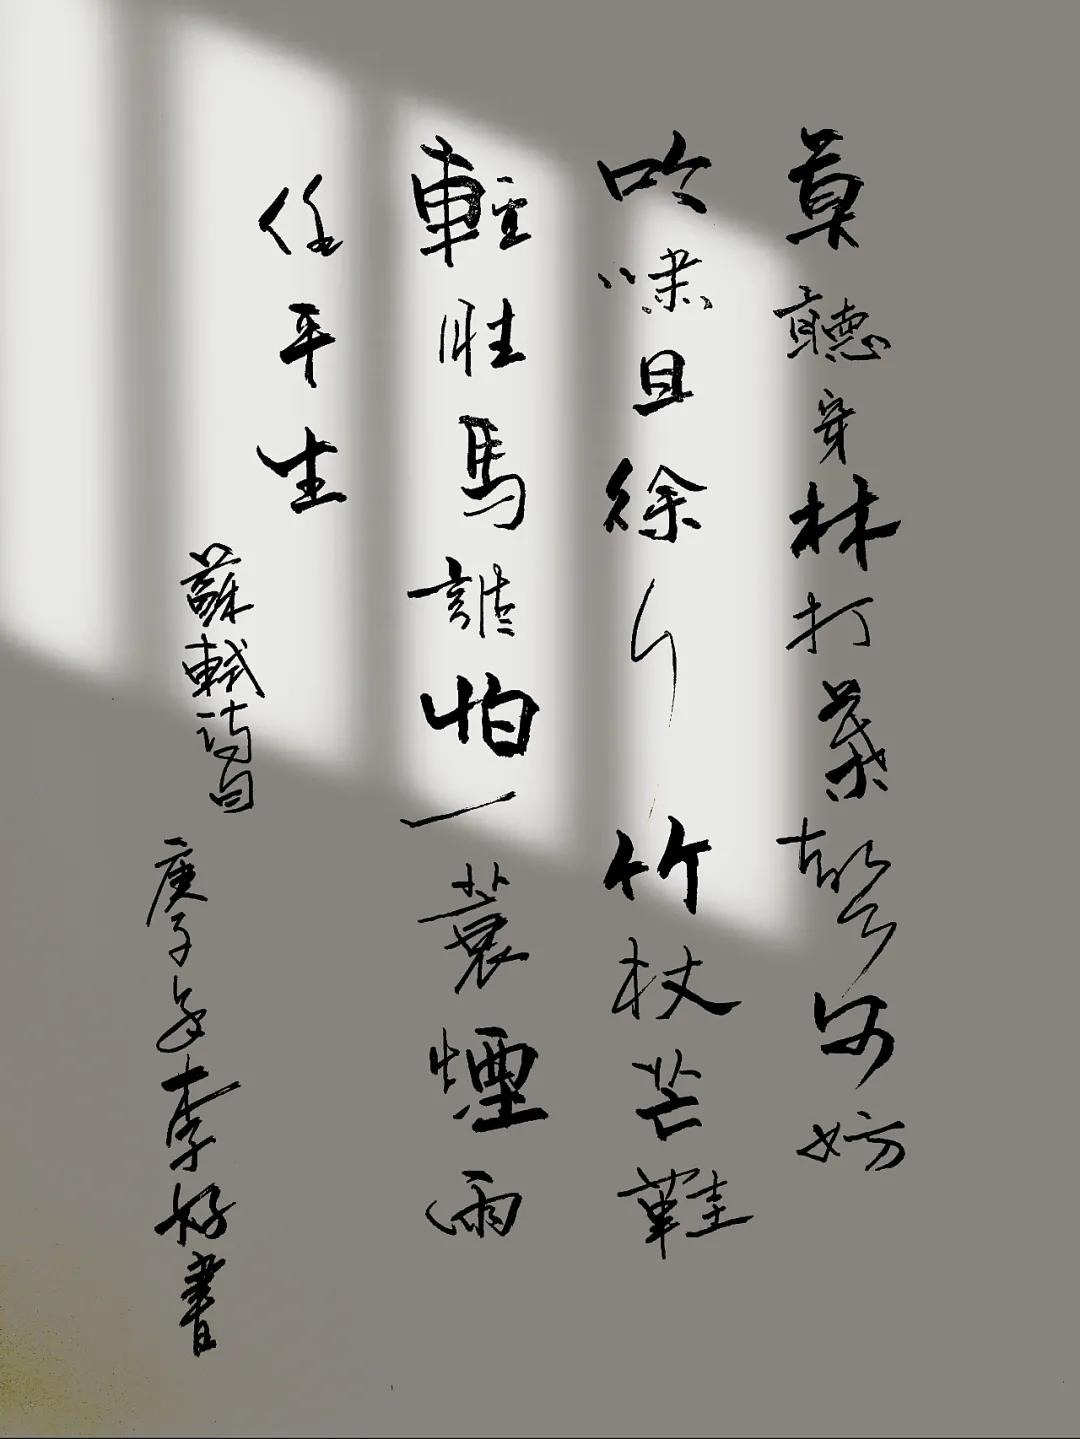 莫聽穿林打葉聲何妨
吟嘯且徐行竹杖芒鞋
輕胜馬誰怕一蓑煙雨
任平生
蘇軾
庚子年李好書